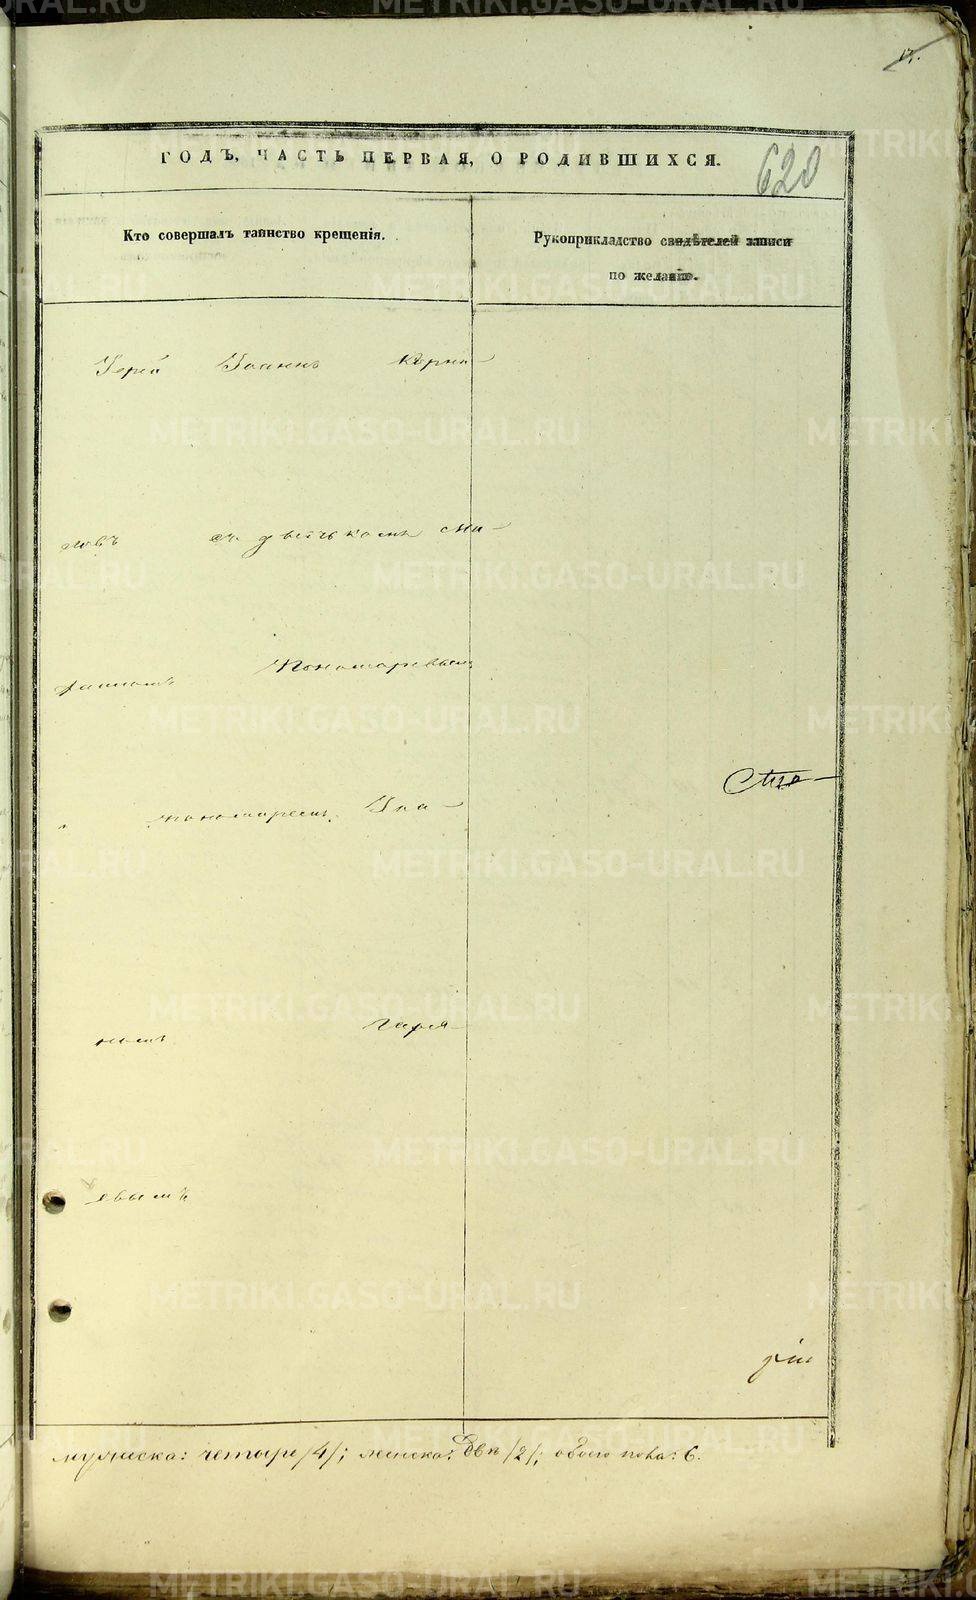 17.
ГОДЪ, ЧАСТЬ ПЕРВАЯ, О РОДИВШИХСЯ.
620
Кто совершалъ таинство крещенія.
Рукоприкладство свидѣтелей записи
по желанію.
Іерей Іоаннъ Корни-
ловъ съ дьячкомъ
Пономаревымъ
и пономаремъ Іоа-
номъ Гаря-
евымъ
мужеска: четыре /4/; женска: двѣ /2/; обоего пола: 6.
METRIKI.GASO-URAL.RU